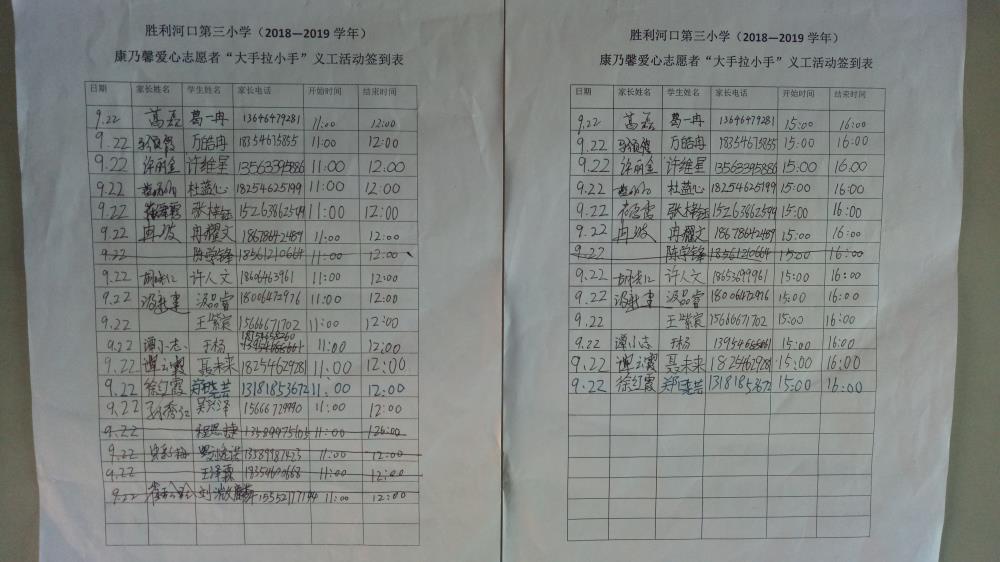 胜利河口第三小学（2018—2019 学年）
康乃馨爱心志愿者“大手拉小手”义工活动签到表
日期 家长姓名 学生姓名 家长电话 开始时间 结束时间
9.22 葛磊 葛一冉 13646479281 11:00 12:00
9.22 万皓冉 18354675855 11:00 12:00
9.22 许丽金 许维星 13563395886 11:00 12:00
9.22 杜蓝心 18254625199 11:00 12:00
9.22 15263862599 11:00 12:00
9.22 冉波 冉耀文 18678642489 11:00 12:00
9.22 陈学锋 18561210664 11:00 12:00
9.22 许人文 18606463961 11:00 12:00
9.22 18006472976 11:00 12:00
9.22 王紫宸 15666671702 11:00 12:00
9.22 谭小志 于杨 18754658260 11:00 12:00
9.22 谭云霞 聂未来 18254629281 11:00 12:00
9.22 徐红霞 郑晓芸 13181853672 11:00 12:00
9.22 15666729990 11:00 12:00
9.22 程思捷 11:00 12:00
9.22 13589987423 11:00 12:00
9.22 王泽霖 18354670668 11:00 12:00
9.22 15552177194 11:00 12:00
胜利河口第三小学（2018—2019 学年）
康乃馨爱心志愿者“大手拉小手”义工活动签到表
日期 家长姓名 学生姓名 家长电话 开始时间 结束时间
9.22 葛磊 葛一冉 13646479281 15:00 16:00
9.22 万皓冉 18354675855 15:00 16:00
9.22 许丽金 许维星 13563395886 15:00 16:00
9.22 杜蓝心 18254625199 15:00 16:00
9.22 15263862599 15:00 16:00
9.22 冉波 冉耀文 18678642489 15:00 16:00
9.22 陈学锋 18561210664 15:00 16:00
9.22 许人文 18653699961 15:00 16:00
9.22 18006472976 15:00 16:00
9.22 王紫宸 15666671702 15:00 16:00
9.22 谭小志 于杨 15:00 16:00
9.22 谭云霞 聂未来 18254629281 15:00 16:00
9.22 徐红霞 郑晓芸 13181853672 15:00 16:00